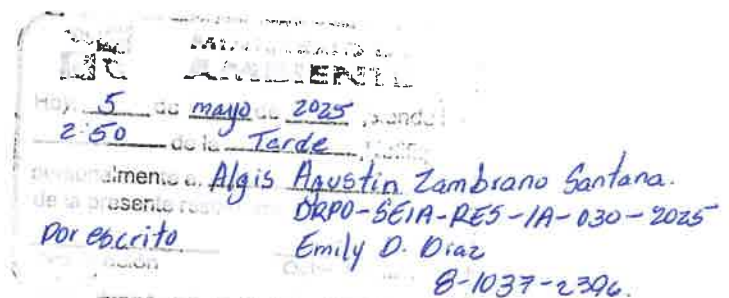 MINISTERIO DE
AMBIENTE
Hoy, 5 de mayo de 2025, siendo
2:50 de la Tarde
personalmente a Algis Agustin Zambrano Santana.
de la presente
DRPO-SEIA-RES-IA-030-2025
Por escrito
Emily D. Diaz
8-1037-2396.